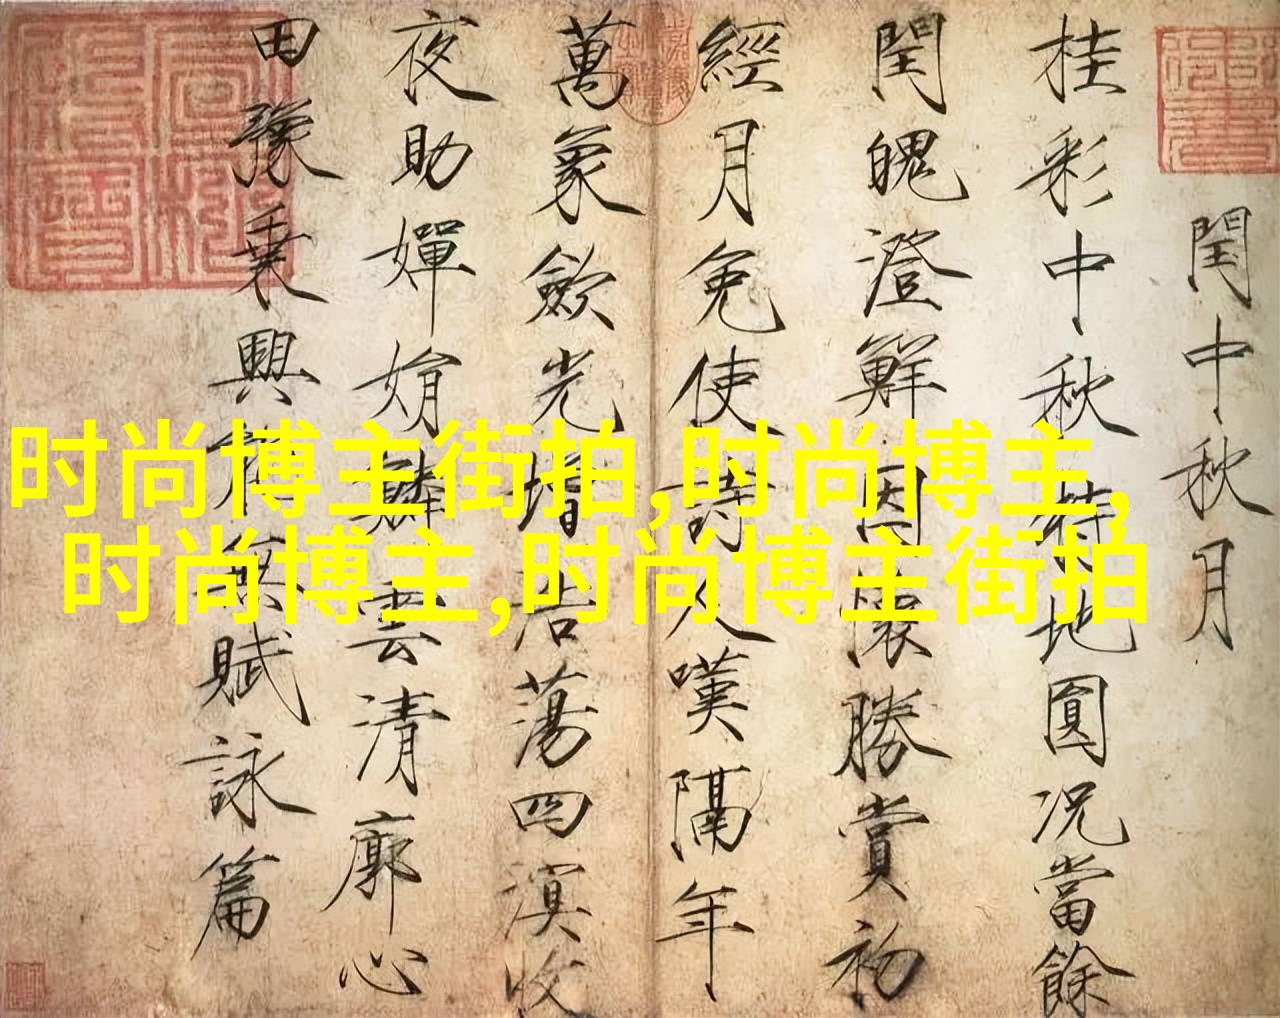 时尚博主街拍,时尚博主,
时尚博主,时尚博主街拍
閏中秋月
桂彩中秋特地圓況當餘
閏魄澄鮮因懷勝賞初
經月免使詩人嘆隔年
萬象歛光增浩蕩四溟收
夜助嬋娟 雲清廓心
田豫乗興 無賦詠篇